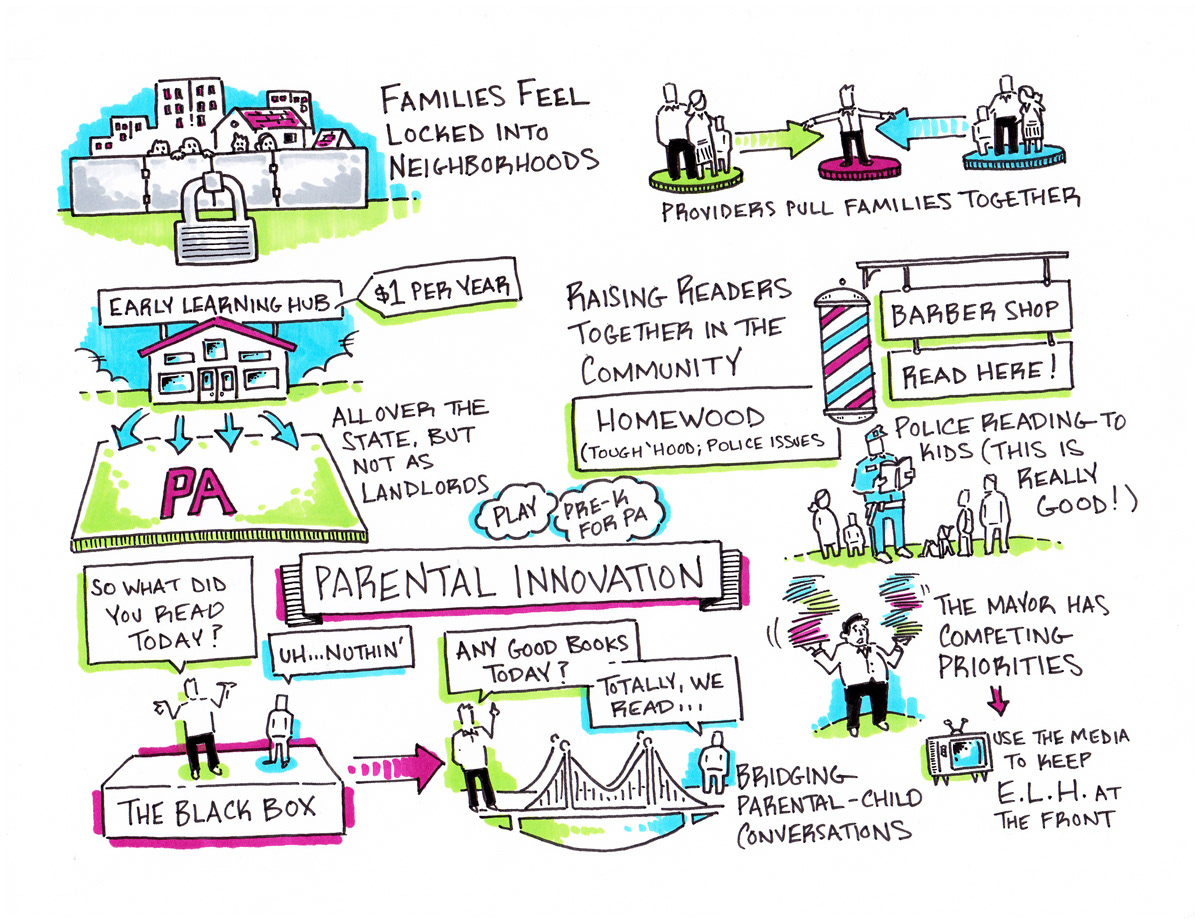 FAMILIES FEEL
LOCKED INTO
NEIGHBORHOODS
PROVIDERS PULL FAMILIES TOGETHER
EARLY LEARNING HUB
$1 PER YEAR
ALL OVER THE
STATE, BUT
NOT AS
LANDLORDS
PA
RAISING READERS
TOGETHER IN THE
COMMUNITY
HOMEWOOD
(TOUGH 'HOOD; POLICE ISSUES
BARBER SHOP
READ HERE!
POLICE READING TO
KIDS (THIS IS
REALLY
GOOD!)
PLAY
PRE-K
FOR PA
PARENTAL INNOVATION
SO WHAT DID
YOU READ
TODAY?
UH...NUTHIN'
THE BLACK BOX
ANY GOOD BOOKS
TODAY?
TOTALLY, WE
READ...
BRIDGING
PARENTAL-CHILD
CONVERSATIONS
THE MAYOR HAS
COMPETING
PRIORITIES
USE THE MEDIA
TO KEEP
E.L.H. AT
THE FRONT